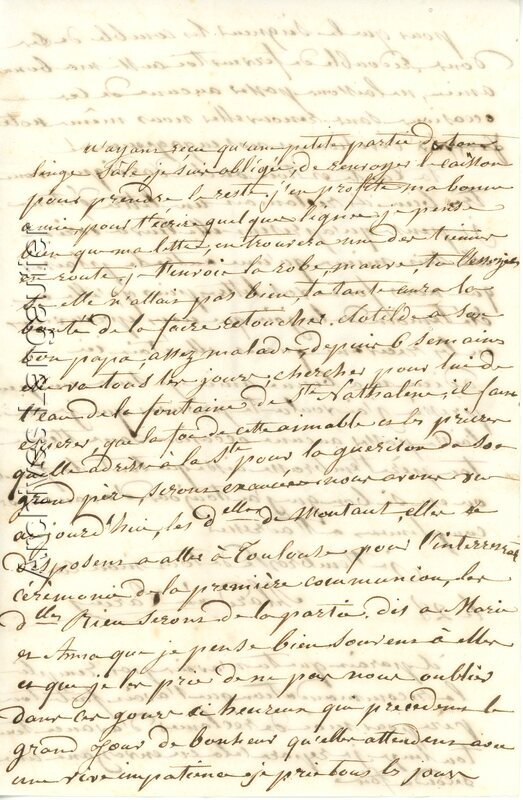 N'ayant reçu qu'une petite partie de ton
linge sale, je suis obligée, de renvoyer le caisson
pour prendre le reste, j'en profite ma bonne
amie, pour t'ecrire quelque lignes, je pense
bien que ma lettre, en trouvera une des tiennes
en route, je t'envoie la robe, mauve, tu l'essayes
si elle n'allait pas bien, ta tante aura la
bonté de la faire retoucher. Clotilde a son
bon papa, assez malade, depuis 6 semaines
va tous les jours, chercher pour lui de
l'eau de la fontaine de Ste Nathalène, il faut
esperer, que la foi de cette aimable et les prieres
qu'elle adresse à la Ste pour la guerison de son
grand père, seront exaucées nous avons vu
aujourd'hui, les delles de Montaut, elles se
disposent a aller à Toulouse pour l'interressante
cérémonie de la premiere communion, les
delles Rieu seront de la partie. dis a Marie
et Anna que je pense bien souvent à elles
et que je les prie de ne pas nous oublier
dans ces jours si heureux qui precedent le
grand jour de bonheur qu'elles attendent avec
une vive impatience, je prie tous les jours
Archives-81C Gaultier